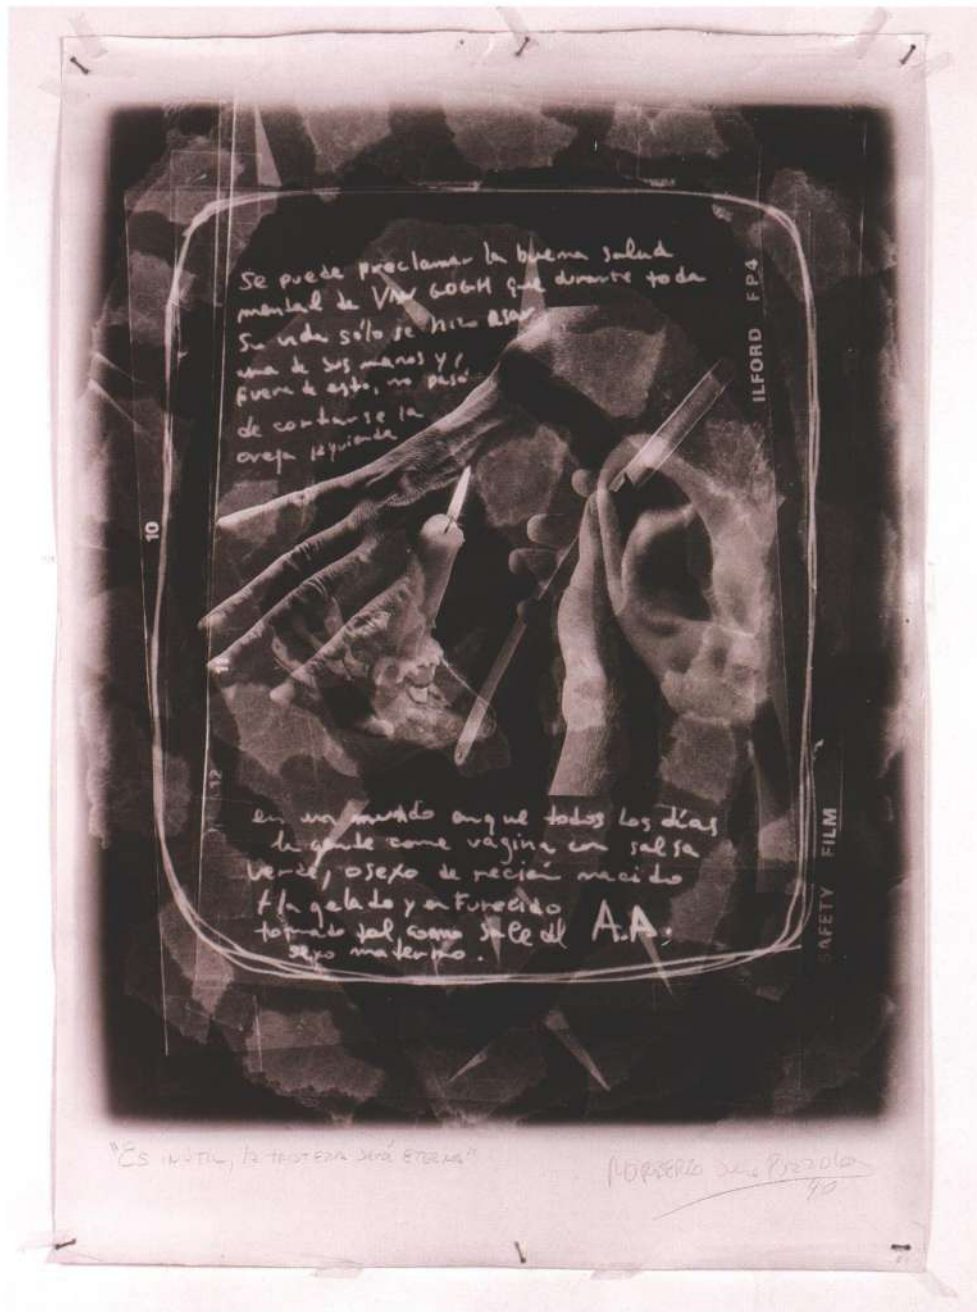 Se puede proclamar la buena salud
mental de VAN GOGH que durante toda
su vida sólo se hizo asar
una de sus manos y,
fuera de esto, no pasó
de cortarse la
oreja izquierda
ILFORD FP4
10
11
12
en un mundo en que todos los días
la gente come vagina con salsa
verde, o sexo de recién nacido
flagelado y enfurecido
tomado tal como sale del
sexo materno.
A.A.
SAFETY FILM
"Es inútil, la tristeza será eterna"
NORBERTO Puzzolo
90